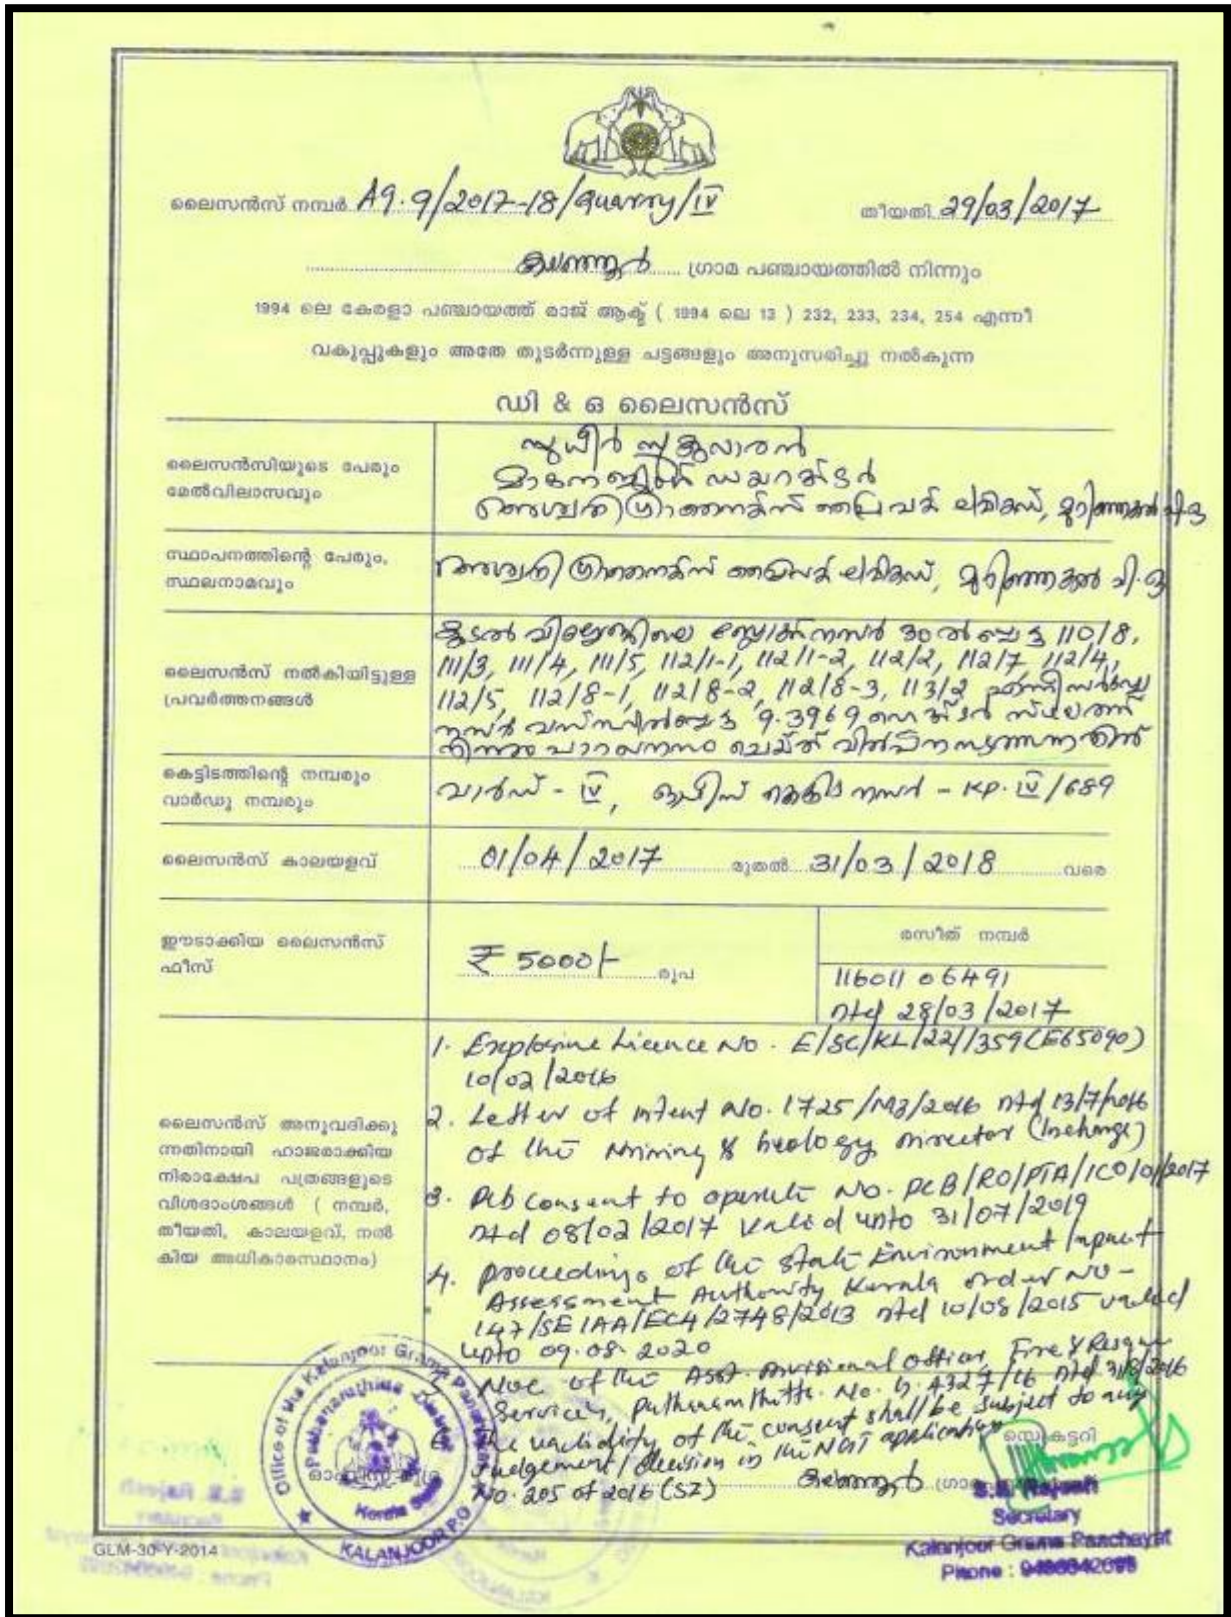 ലൈസൻസ് നമ്പർ A9.9/2017-18/Quarry/IV തീയതി 29/03/2017
കലഞ്ഞൂർ ഗ്രാമ പഞ്ചായത്തിൽ നിന്നും
1994 ലെ കേരളാ പഞ്ചായത്ത് രാജ് ആക്ട് ( 1994 ലെ 13 ) 232, 233, 234, 254 എന്നീ
വകുപ്പുകളും അതേ തുടർന്നുള്ള ചട്ടങ്ങളും അനുസരിച്ചു നൽകുന്ന
ഡി & ഒ ലൈസൻസ്
ലൈസൻസിയുടെ പേരും
മേൽവിലാസവും
സുധീർ സുകുമാരൻ
മാനേജിങ് ഡയറക്ടർ
പ്രൈവറ്റ് ലിമിറ്റഡ്, മുറിഞ്ഞകൽ പി.ഒ
സ്ഥാപനത്തിന്റെ പേരും,
സ്ഥലനാമവും
പ്രൈവറ്റ് ലിമിറ്റഡ്, മുറിഞ്ഞകൽ പി.ഒ
ലൈസൻസ് നൽകിയിട്ടുള്ള
പ്രവർത്തനങ്ങൾ
കൂടൽ വില്ലേജിലെ ബ്ലോക്ക് നമ്പർ 30 ൽ പ്പെട്ട 110/8,
111/3, 111/4, 111/5, 112/1-1, 112/1-2, 112/2, 112/7, 112/4,
112/5, 112/8-1, 112/8-2, 112/8-3, 113/2 എന്നീ സർവ്വേ
നമ്പർ 9.3969 ഹെക്ടർ സ്ഥലത്ത്
നിന്നും പാറഖനനം ചെയ്ത് വിൽപ്പന നടത്തുന്നതിന്
കെട്ടിടത്തിന്റെ നമ്പരും
വാർഡു നമ്പരും
വാർഡ് - IV, ഓഫീസ് കെട്ടിട നമ്പർ - KP. IV/689
ലൈസൻസ് കാലയളവ്
01/04/2017 മുതൽ 31/03/2018 വരെ
ഈടാക്കിയ ലൈസൻസ്
ഫീസ്
₹ 5000/- രൂപ
രസീത് നമ്പർ
116011 06491
dtd 28/03/2017
ലൈസൻസ് അനുവദിക്കു
ന്നതിനായി ഹാജരാക്കിയ
നിരാക്ഷേപ പത്രങ്ങളുടെ
വിശദാംശങ്ങൾ ( നമ്പർ,
തീയതി, കാലയളവ്, നൽ
കിയ അധികാരസ്ഥാനം)
1. Explosive Licence No. E/SC/KL/22/1359(E65090)
10/02/2016
2. Letter of intent No. 1725/M3/2016 dtd 13/7/2016
of the Mining & Geology Director (Incharge)
3. PCB consent to operate No. PCB/RO/PTA/ICO/01/2017
dtd 08/02/2017 valid upto 31/07/2019
4. Proceedings of the State Environment Impact
Assessment Authority Kerala order NO-
147/SEIAA/EC4/2748/2013 dtd 10/08/2015 valid
upto 09.08.2020
NOC of the Asst. Divisional Officer, Fire & Rescue
Services, Pathanamthitta. No. G. 4327/16 dtd 31/8/2016
6. The validity of the consent shall be subject to any
Judgement/decision in the NGT application
No. 205 of 2016 (SZ)
Office of the Kalanjoor Grama Panchayat
Pathanamthitta District
Kerala State
KALANJOOR P.O
സെക്രട്ടറി
കലഞ്ഞൂർ
S.S. Rajesh
Secretary
Kalanjoor Grama Panchayat
Phone :
GLM-30-Y-2014